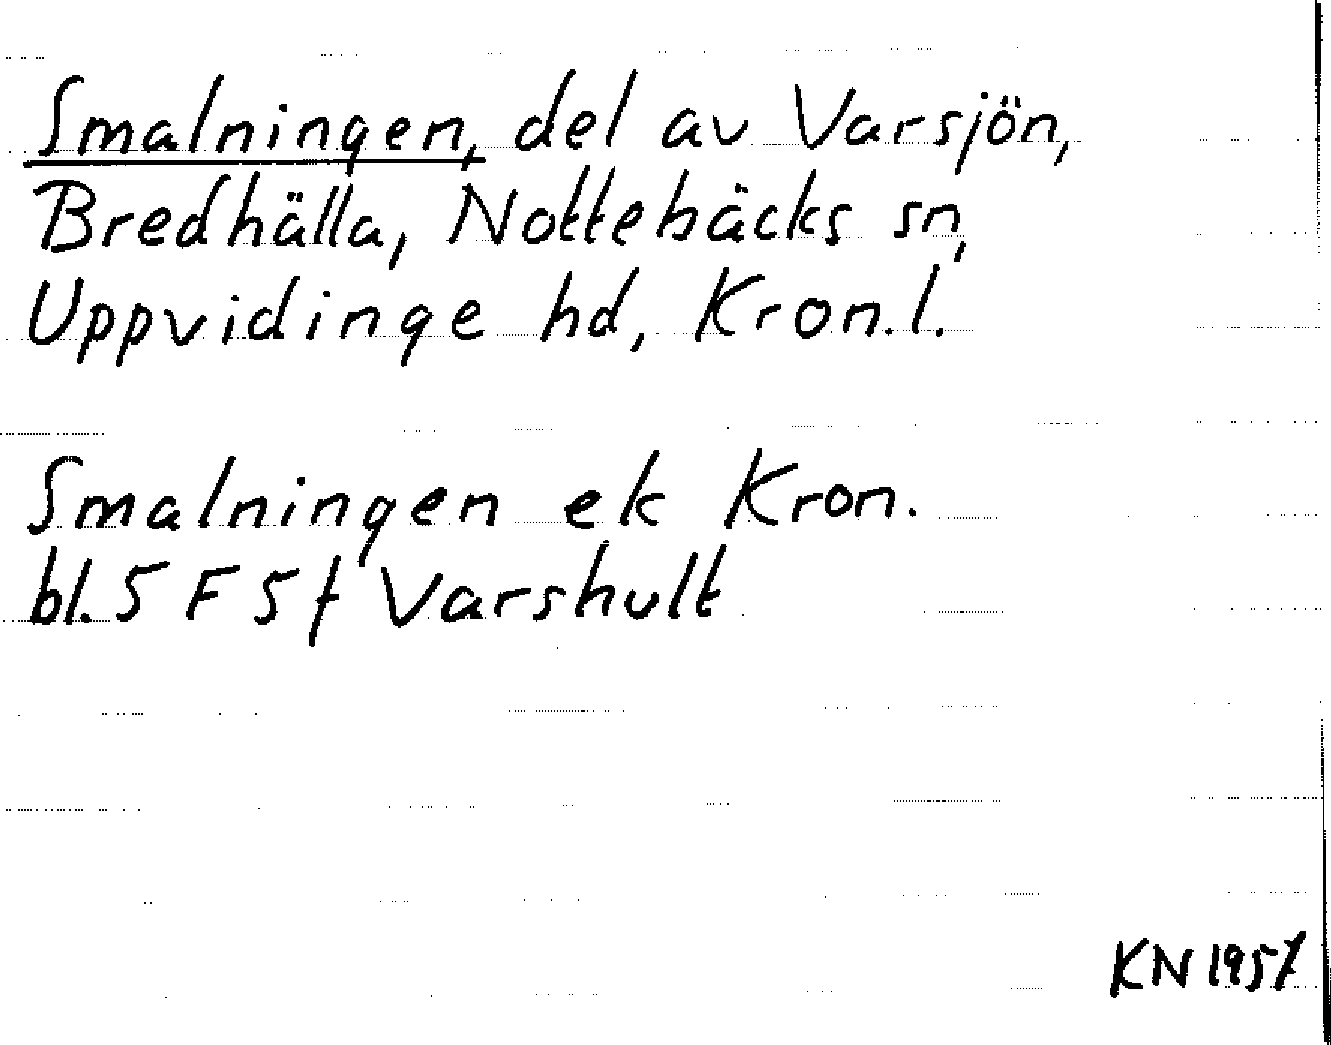 Smalningen, del av Varsjön,
Bredhälla, Nottebäcks sn,
Uppvidinge hd, Kron.l.
Smalningen ek Kron.
bl. 5 F 5 f Varshult
KN 1957